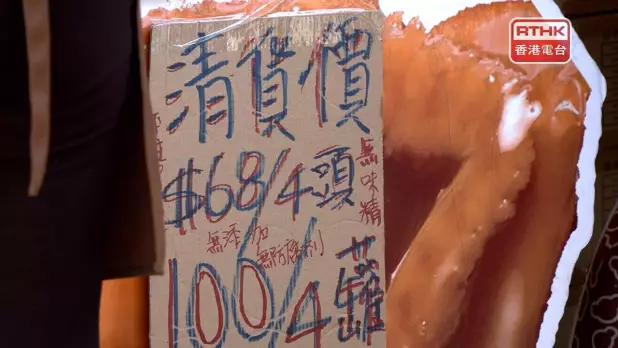 RTHK
香港電台
清貨價
$68/4頭
無味精
無添加
無防腐劑
100/4